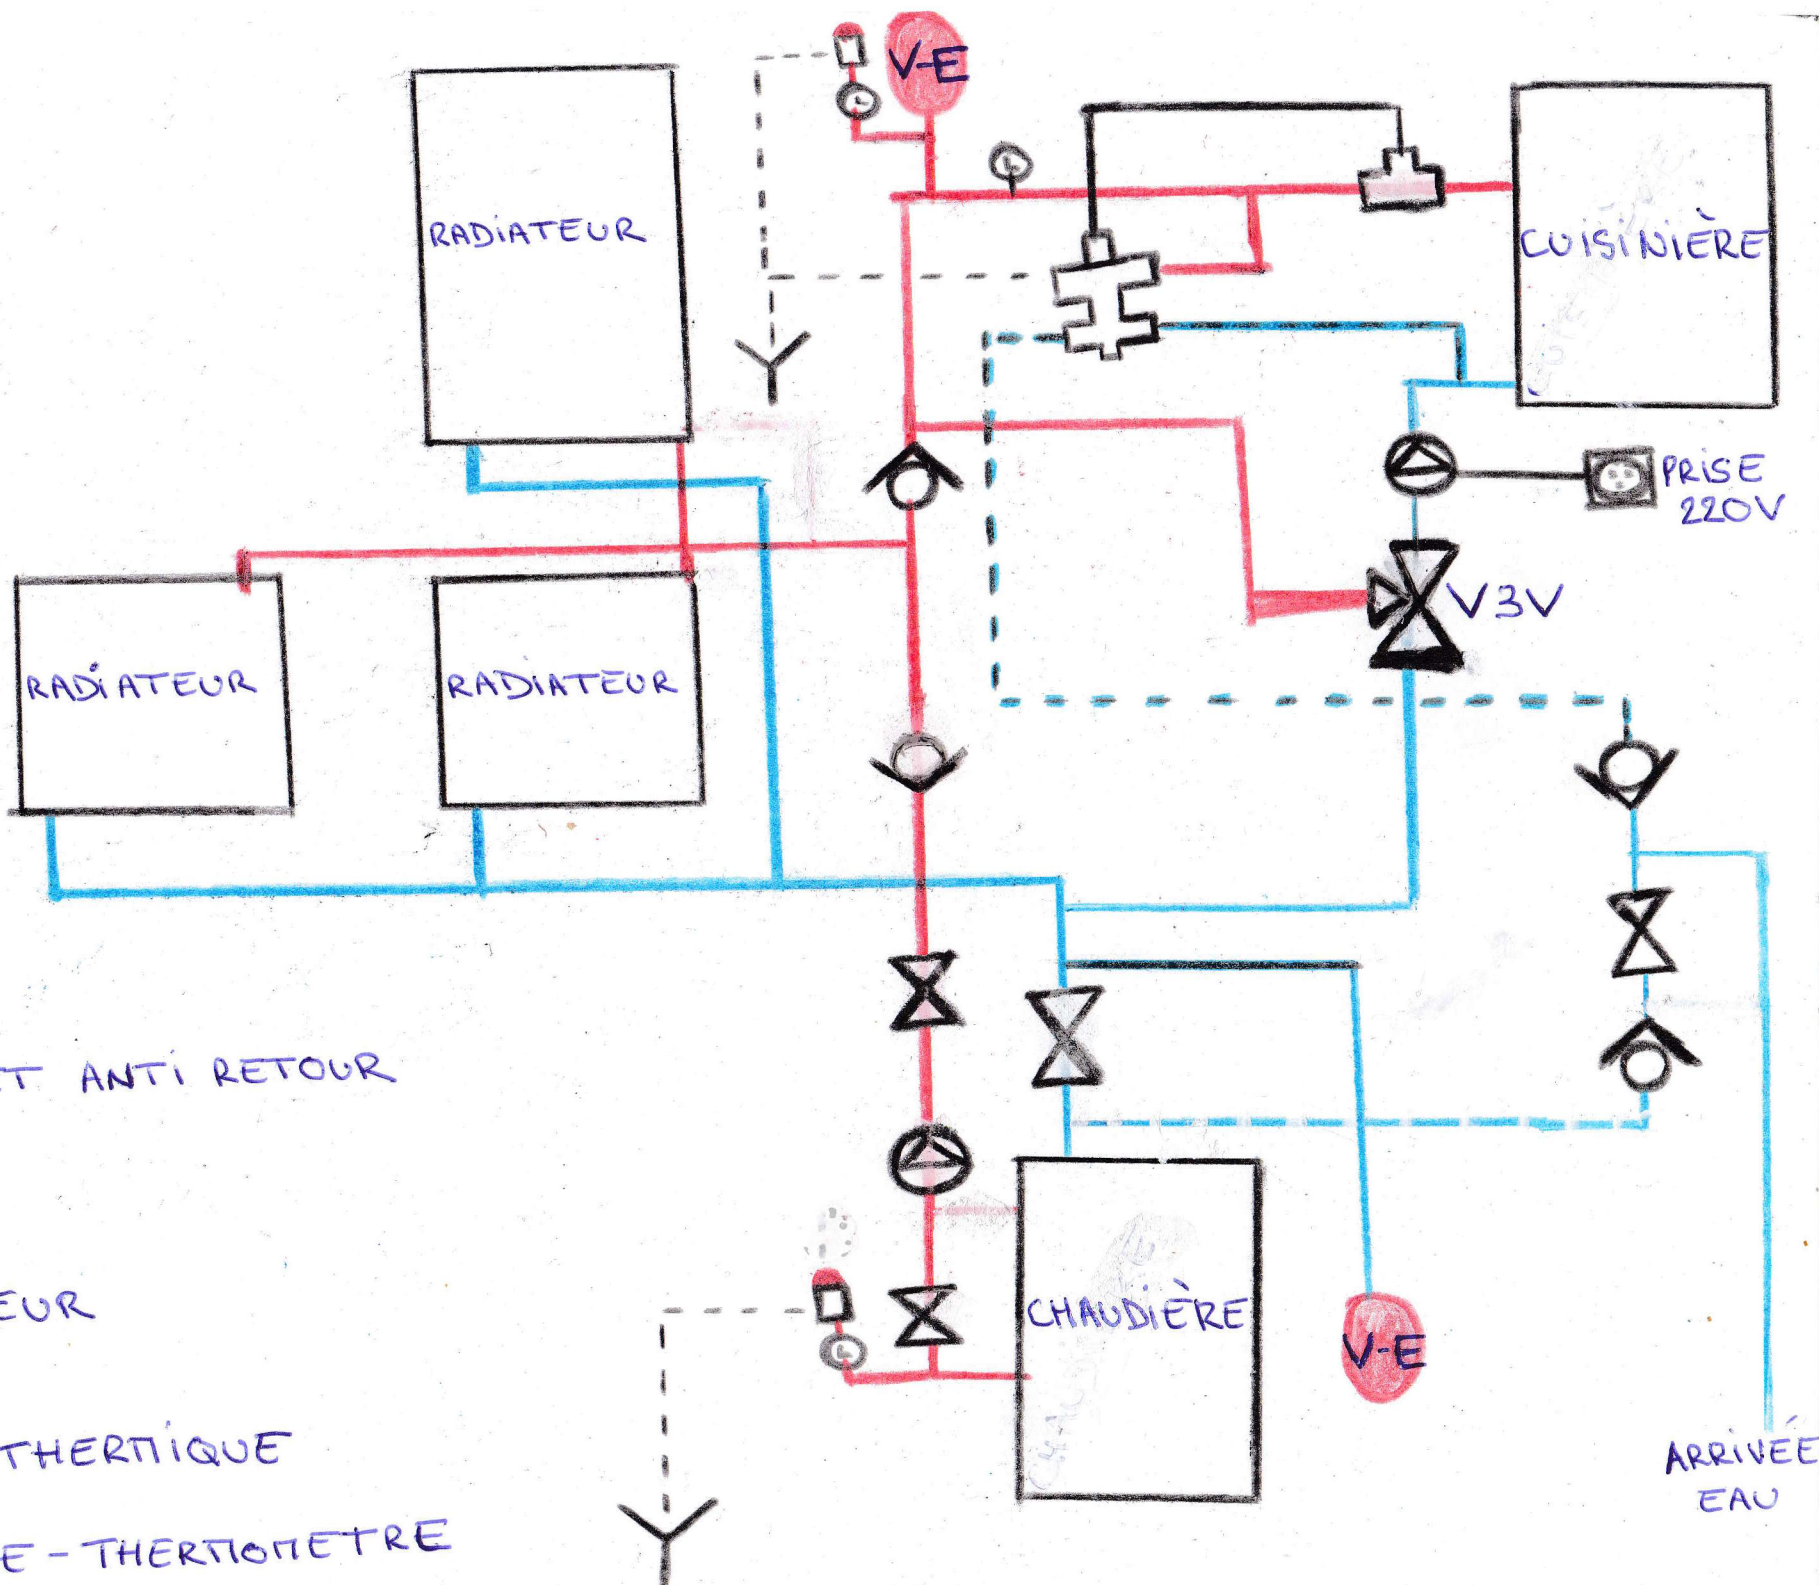 V-E
RADIATEUR
CUISINIÈRE
PRISE
220V
V3V
RADIATEUR
RADIATEUR
T ANTI RETOUR
EUR
CHAUDIÈRE
V-E
THERMIQUE
ARRIVÉE
EAU
E-THERMOMETRE